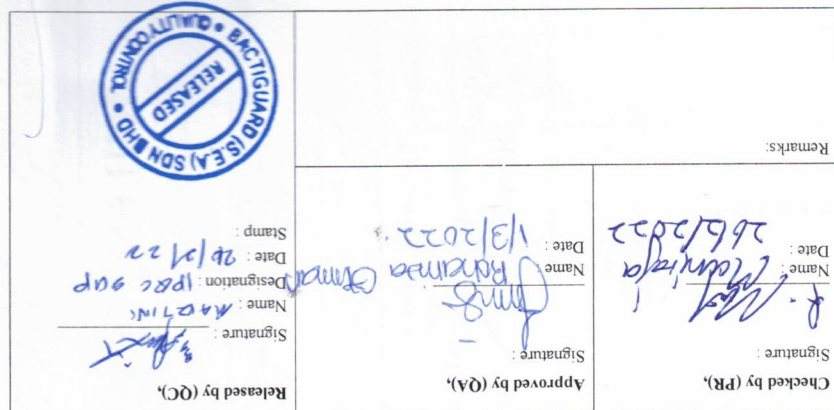 Checked by (PR),
Signature :
Name :
Date :
26/2/2022
Approved by (QA),
Signature :
Name : Rahamiza Othman
Date :
1/3/2022
Released by (QC),
Signature :
Name :
Designation : IPQC SUP
Date : 26/2/22
Stamp :
BACTIGUARD (S.E.A) SDN BHD • QUALITY CONTROL •
RELEASED
Remarks: